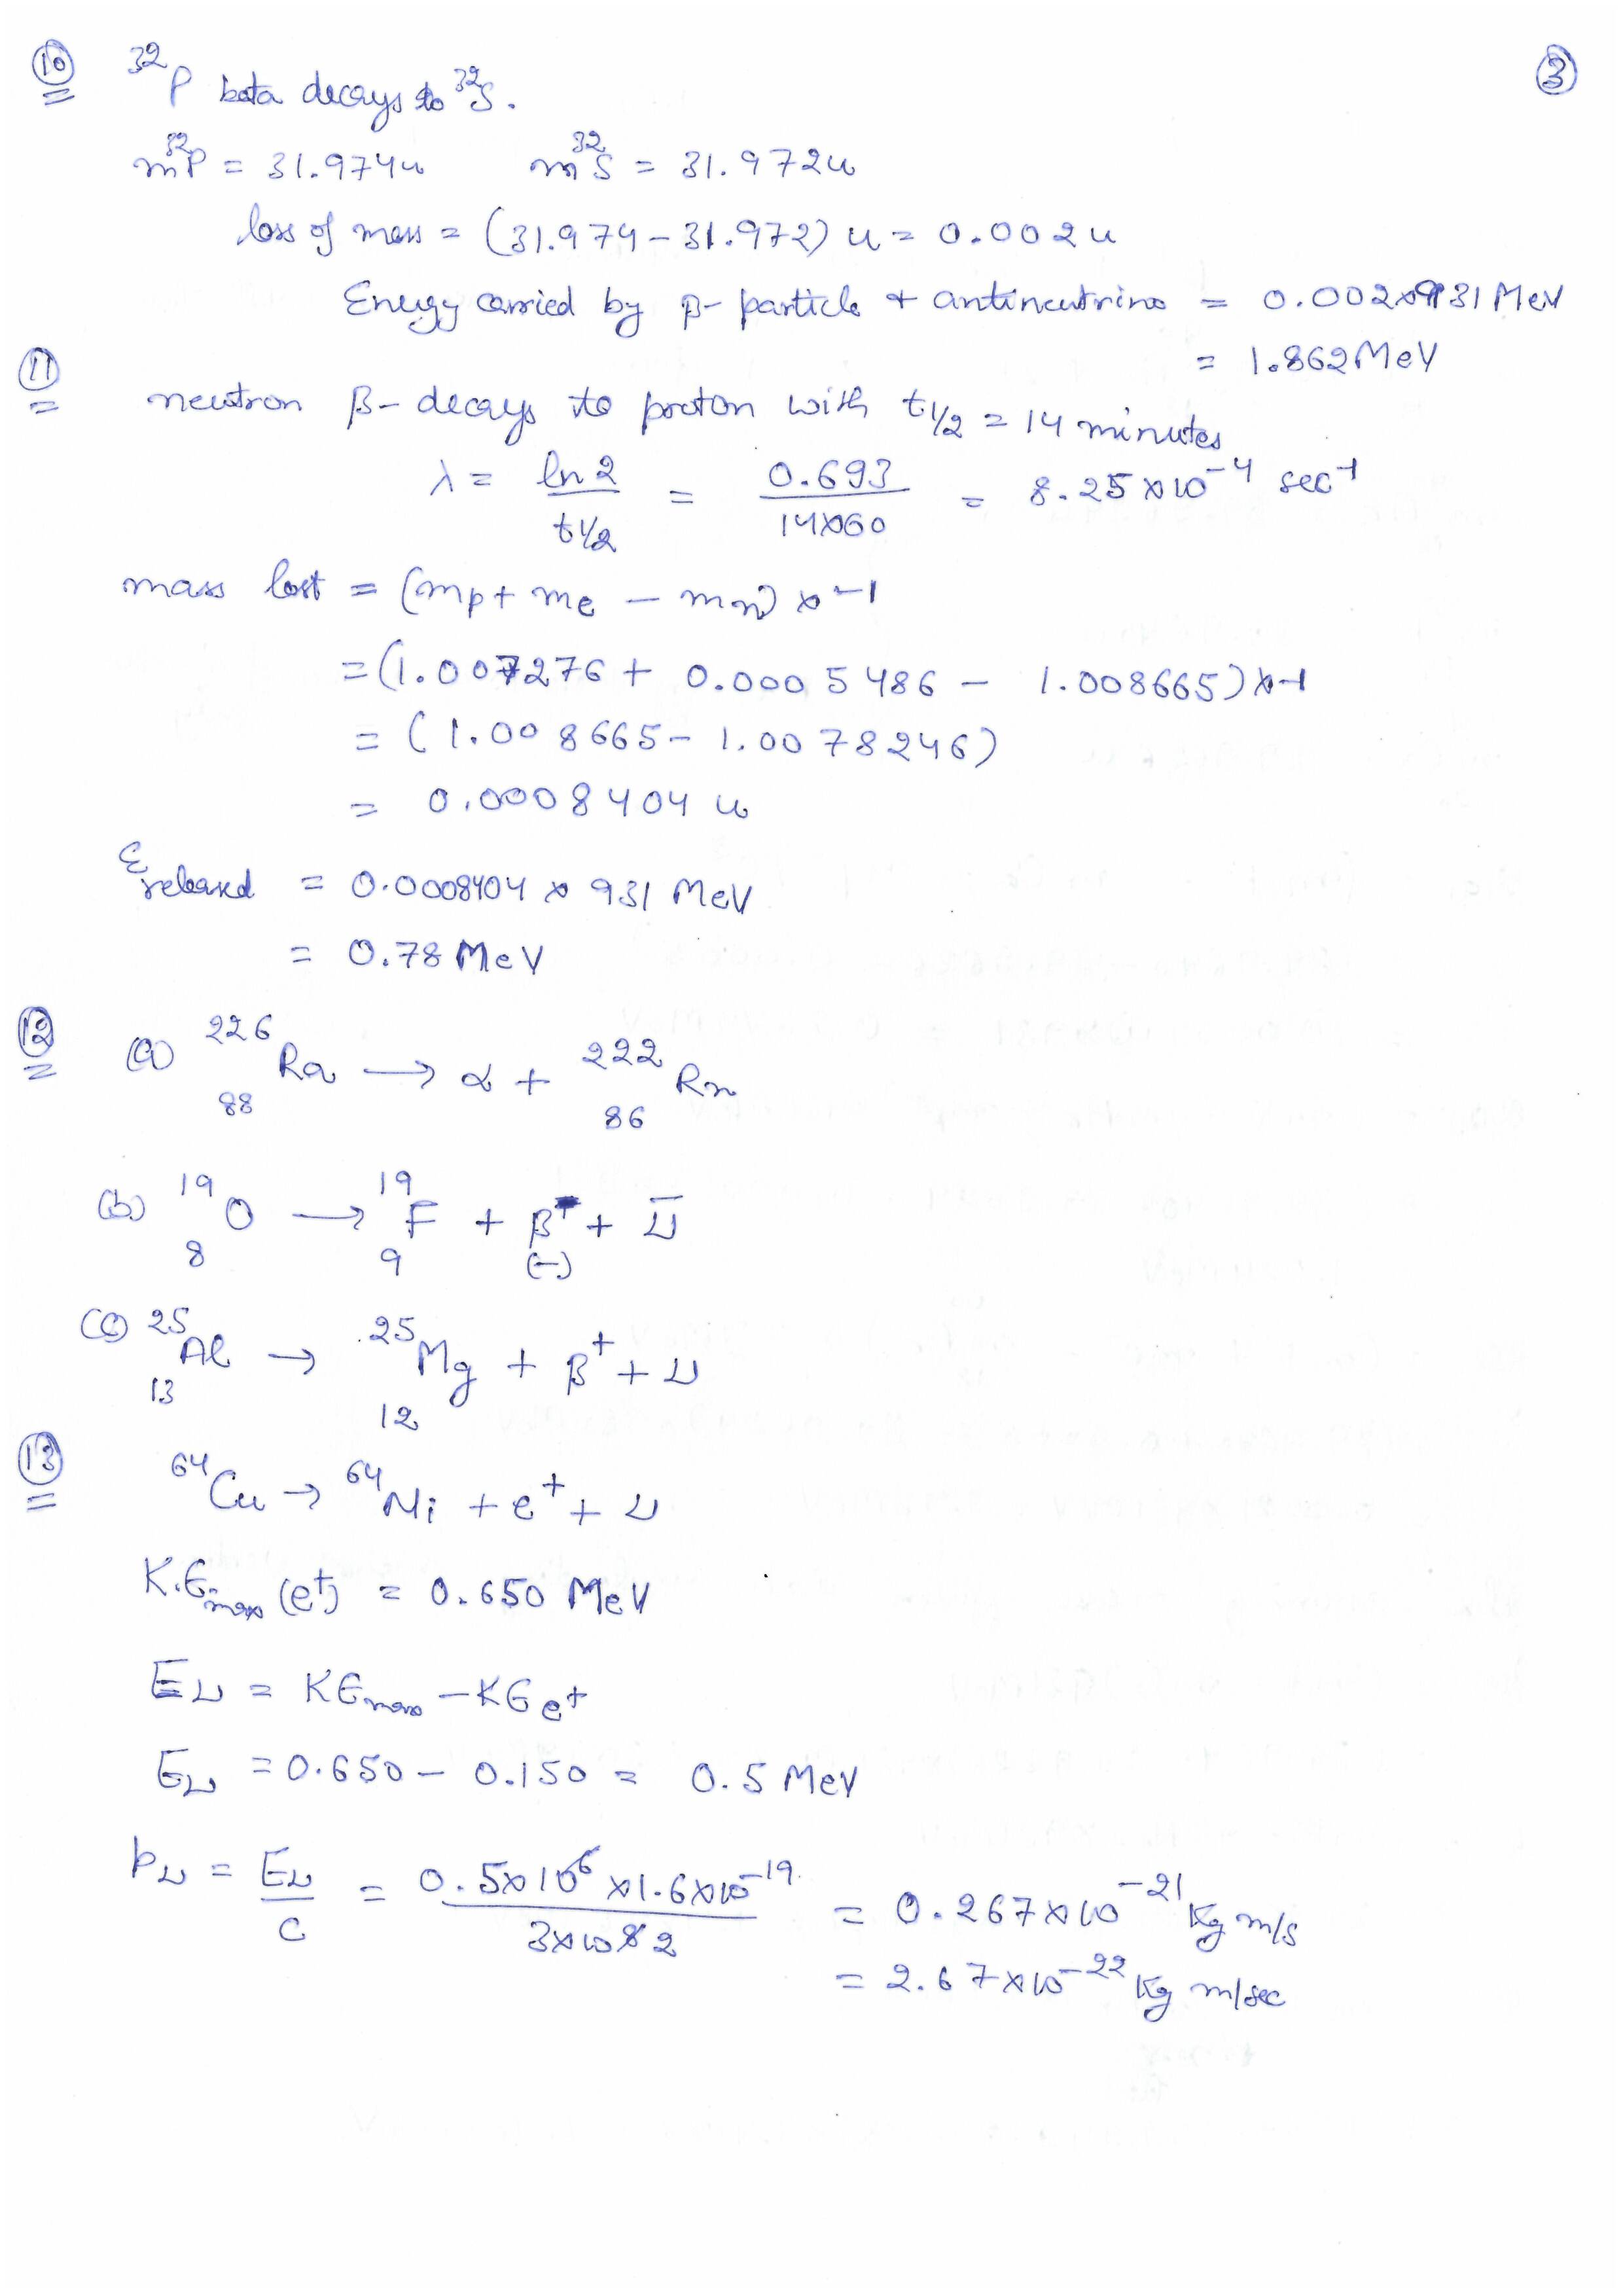 (10) ³²P beta decays to ³²S. (3)
m³²P = 31.974u m³²S = 31.972u
loss of mass = (31.974 - 31.972) u = 0.002u
Energy carried by β- particle + antineutrino = 0.002×931 MeV
= 1.862 MeV
(11) neutron β- decays to proton with t1/2 = 14 minutes
λ = ln 2 / t1/2 = 0.693 / 14×60 = 8.25×10⁻⁴ sec⁻¹
mass lost = (mp + me - mn) × -1
= (1.007276 + 0.0005486 - 1.008665) × -1
= (1.008665 - 1.0078246)
= 0.0008404 u
E released = 0.0008404 × 931 MeV
= 0.78 MeV
(12) (a) ²²⁶₈₈Ra → α + ²²²₈₆Rn
(b) ¹⁹₈O → ¹⁹₉F + β + ν̄
(-)
(c) ²⁵₁₃Al → ²⁵₁₂Mg + β⁺ + ν
(13) ⁶⁴Cu → ⁶⁴Ni + e⁺ + ν
K.E.max (e⁺) = 0.650 MeV
Eν = KEmax - KEe⁺
Eν = 0.650 - 0.150 = 0.5 MeV
pν = Eν / c = 0.5×10⁶ ×1.6×10⁻¹⁹ / 3×10⁸ 2 = 0.267×10⁻²¹ Kg m/s
= 2.67×10⁻²² Kg m/sec